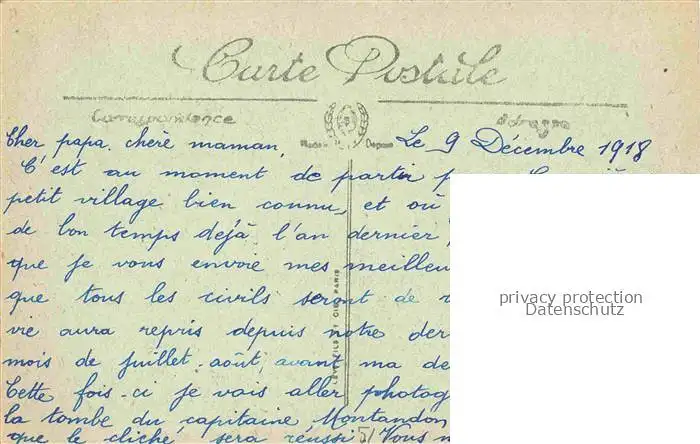 Carte Postale
Correspondance Adresse
Cher papa. chère maman, Le 9 Décembre 1918
C'est au moment de partir
petit village bien connu, et où
de bon temps dejà l'an dernier,
que je vous envoie mes meilleu
que tous les civils seront de
vie aura repris depuis notre der
mois de juillet. août, avant ma de
Cette fois-ci je vais aller photog
la tombe du capitaine Montandon
que le cliché sera réussi. Vous
privacy protection
Datenschutz